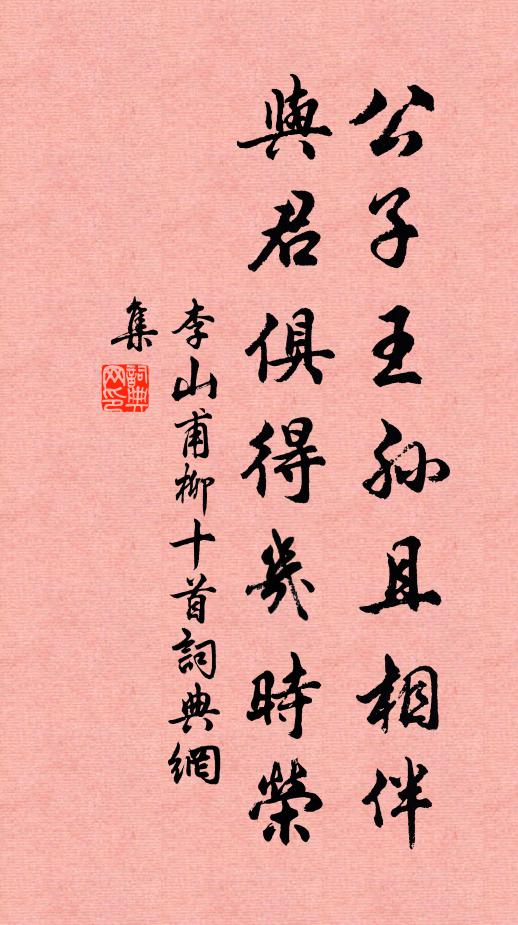 公子王孫且相伴
與君俱得幾時榮
李山甫柳十首詞典網
集
詞典網印